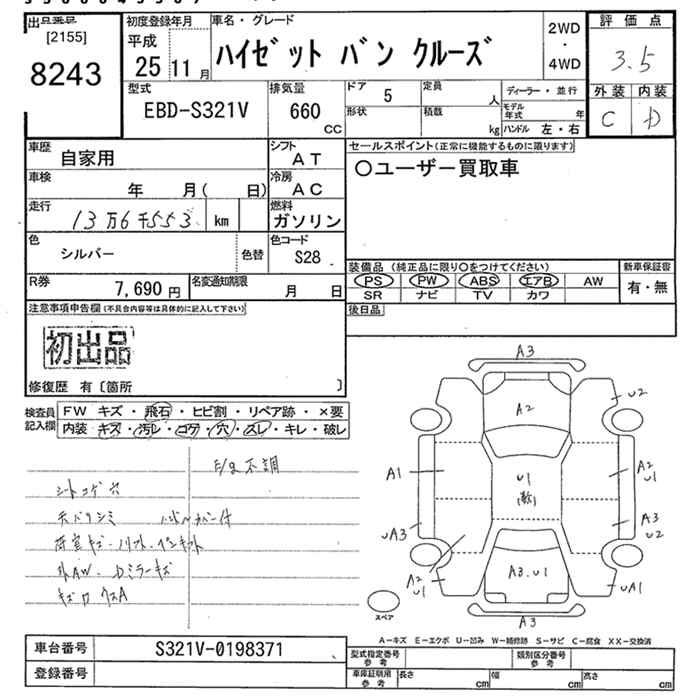 出品番号
[2155]
8243
初度登録年月
平成
25 11 月
車名・グレード
ハイゼット バン クルーズ
2WD
・
4WD
評価点
3.5
外装 内装
C D
型式
EBD-S321V
排気量
660
CC
ドア 5
形状
定員 人
積載 kg
ディーラー・並行
モデル年式 年
ハンドル 左・右
車歴 自家用
シフト AT
車検 年 月( 日)
冷房 AC
走行 13万6千553 km
燃料 ガソリン
色 シルバー 色替
色コード S28
R券 7,690 円
名変通知期限 月 日
セールスポイント(正常に機能するものに限ります)
○ユーザー買取車
装備品 (純正品に限り○をつけてください)
PS PW ABS エアB AW
SR ナビ TV カワ
新車保証書
有・無
後日品
注意事項申告欄(不具合内容等は具体的に記入して下さい)
初出品
修復歴 有〔箇所 〕
検査員記入欄
FW キズ・飛石・ヒビ割・リペア跡・×要
内装 キズ・汚レ・コゲ・穴・スレ・キレ・破レ
E/g不調
シートコゲ穴
天バリシミ
外AW、Dミラーキズ
A3
A2
U2
A1
U1
A2
U1
A3
U2
UA3
A2
U1
A3.U1
UA1
A3
スペア
A-キズ E-エクボ U-凹み W-補修跡 S-サビ C-腐食 XX-交換済
車台番号 S321V-0198371
登録番号
型式指定番号 参考
類別区分番号 参考
車庫証明用 参考
長さ cm 幅 cm 高さ cm